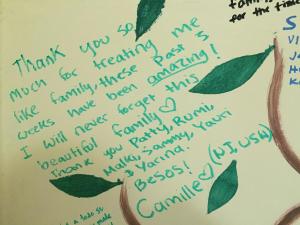 Thank you so
much for treating me
like family, these past 5
weeks have been amazing!
I will never forget this
beautiful family ♡
Thank you Patty, Rumi,
Malki, Sammy, Yauri
& Yacina.
Besos!
Camille ♡ (NJ, USA)
for the time